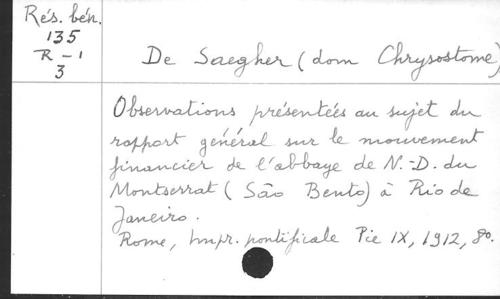 Rés. bén.
135
R - 1
3
De Saegher (dom Chrysostome)
Observations présentées au sujet du
rapport général sur le mouvement
financier de l'abbaye de N.-D. du
Montserrat (São Bento) à Rio de
Janeiro.
Rome, Impr. pontificale Pie IX, 1912, 8o.